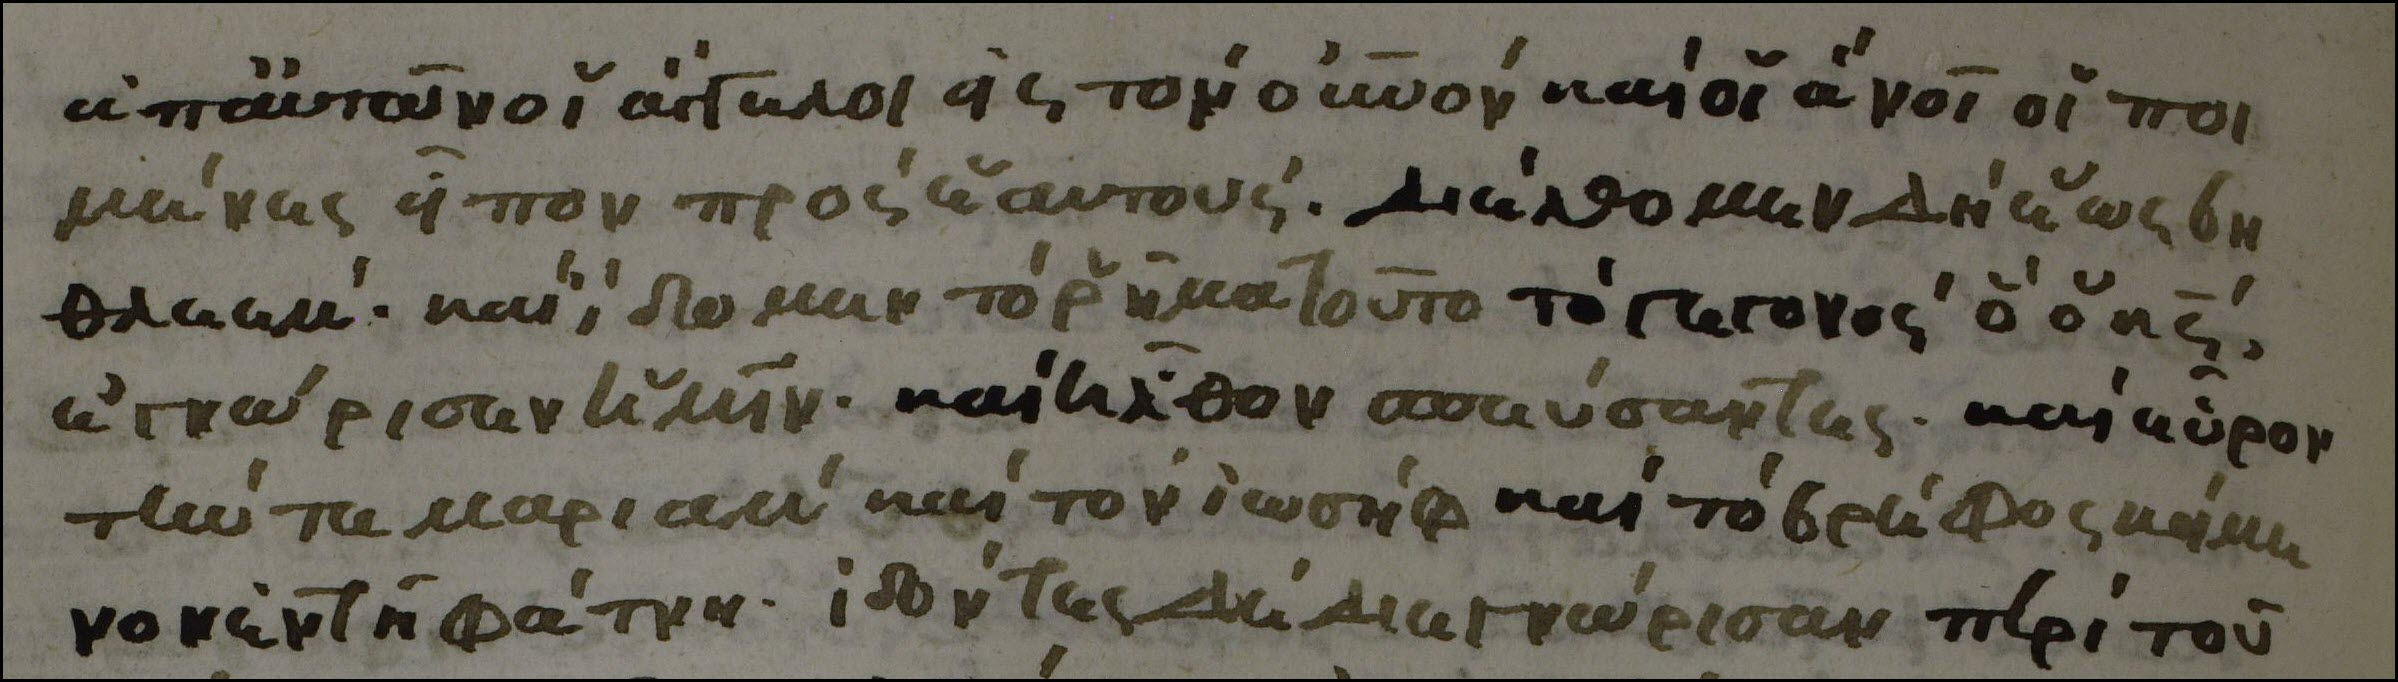 ἀπ αὐτῶν οἱ ἄγγελοι εἰς τὸν οὐνον καὶ οἱ ἄνοι οἱ ποι
μένες εἶπον πρὸς ἑαυτούς. διέλθομεν δὴ ἕως βη
θλεέμ. καὶ ἴδομεν τὸ ῥῆμα τοῦτο τὸ γεγονὸς ὃ ὁ κς
ἐγνώρισεν ἡμῖν. καὶ ἦλθον σπεύσαντες. καὶ εὗρον
τήν τε μαριὰμ καὶ τὸν ἰωσὴφ καὶ τὸ βρέφος κείμε
νον ἐν τῇ φάτνῃ. ἰδόντες δὲ διεγνώρισαν περὶ τοῦ